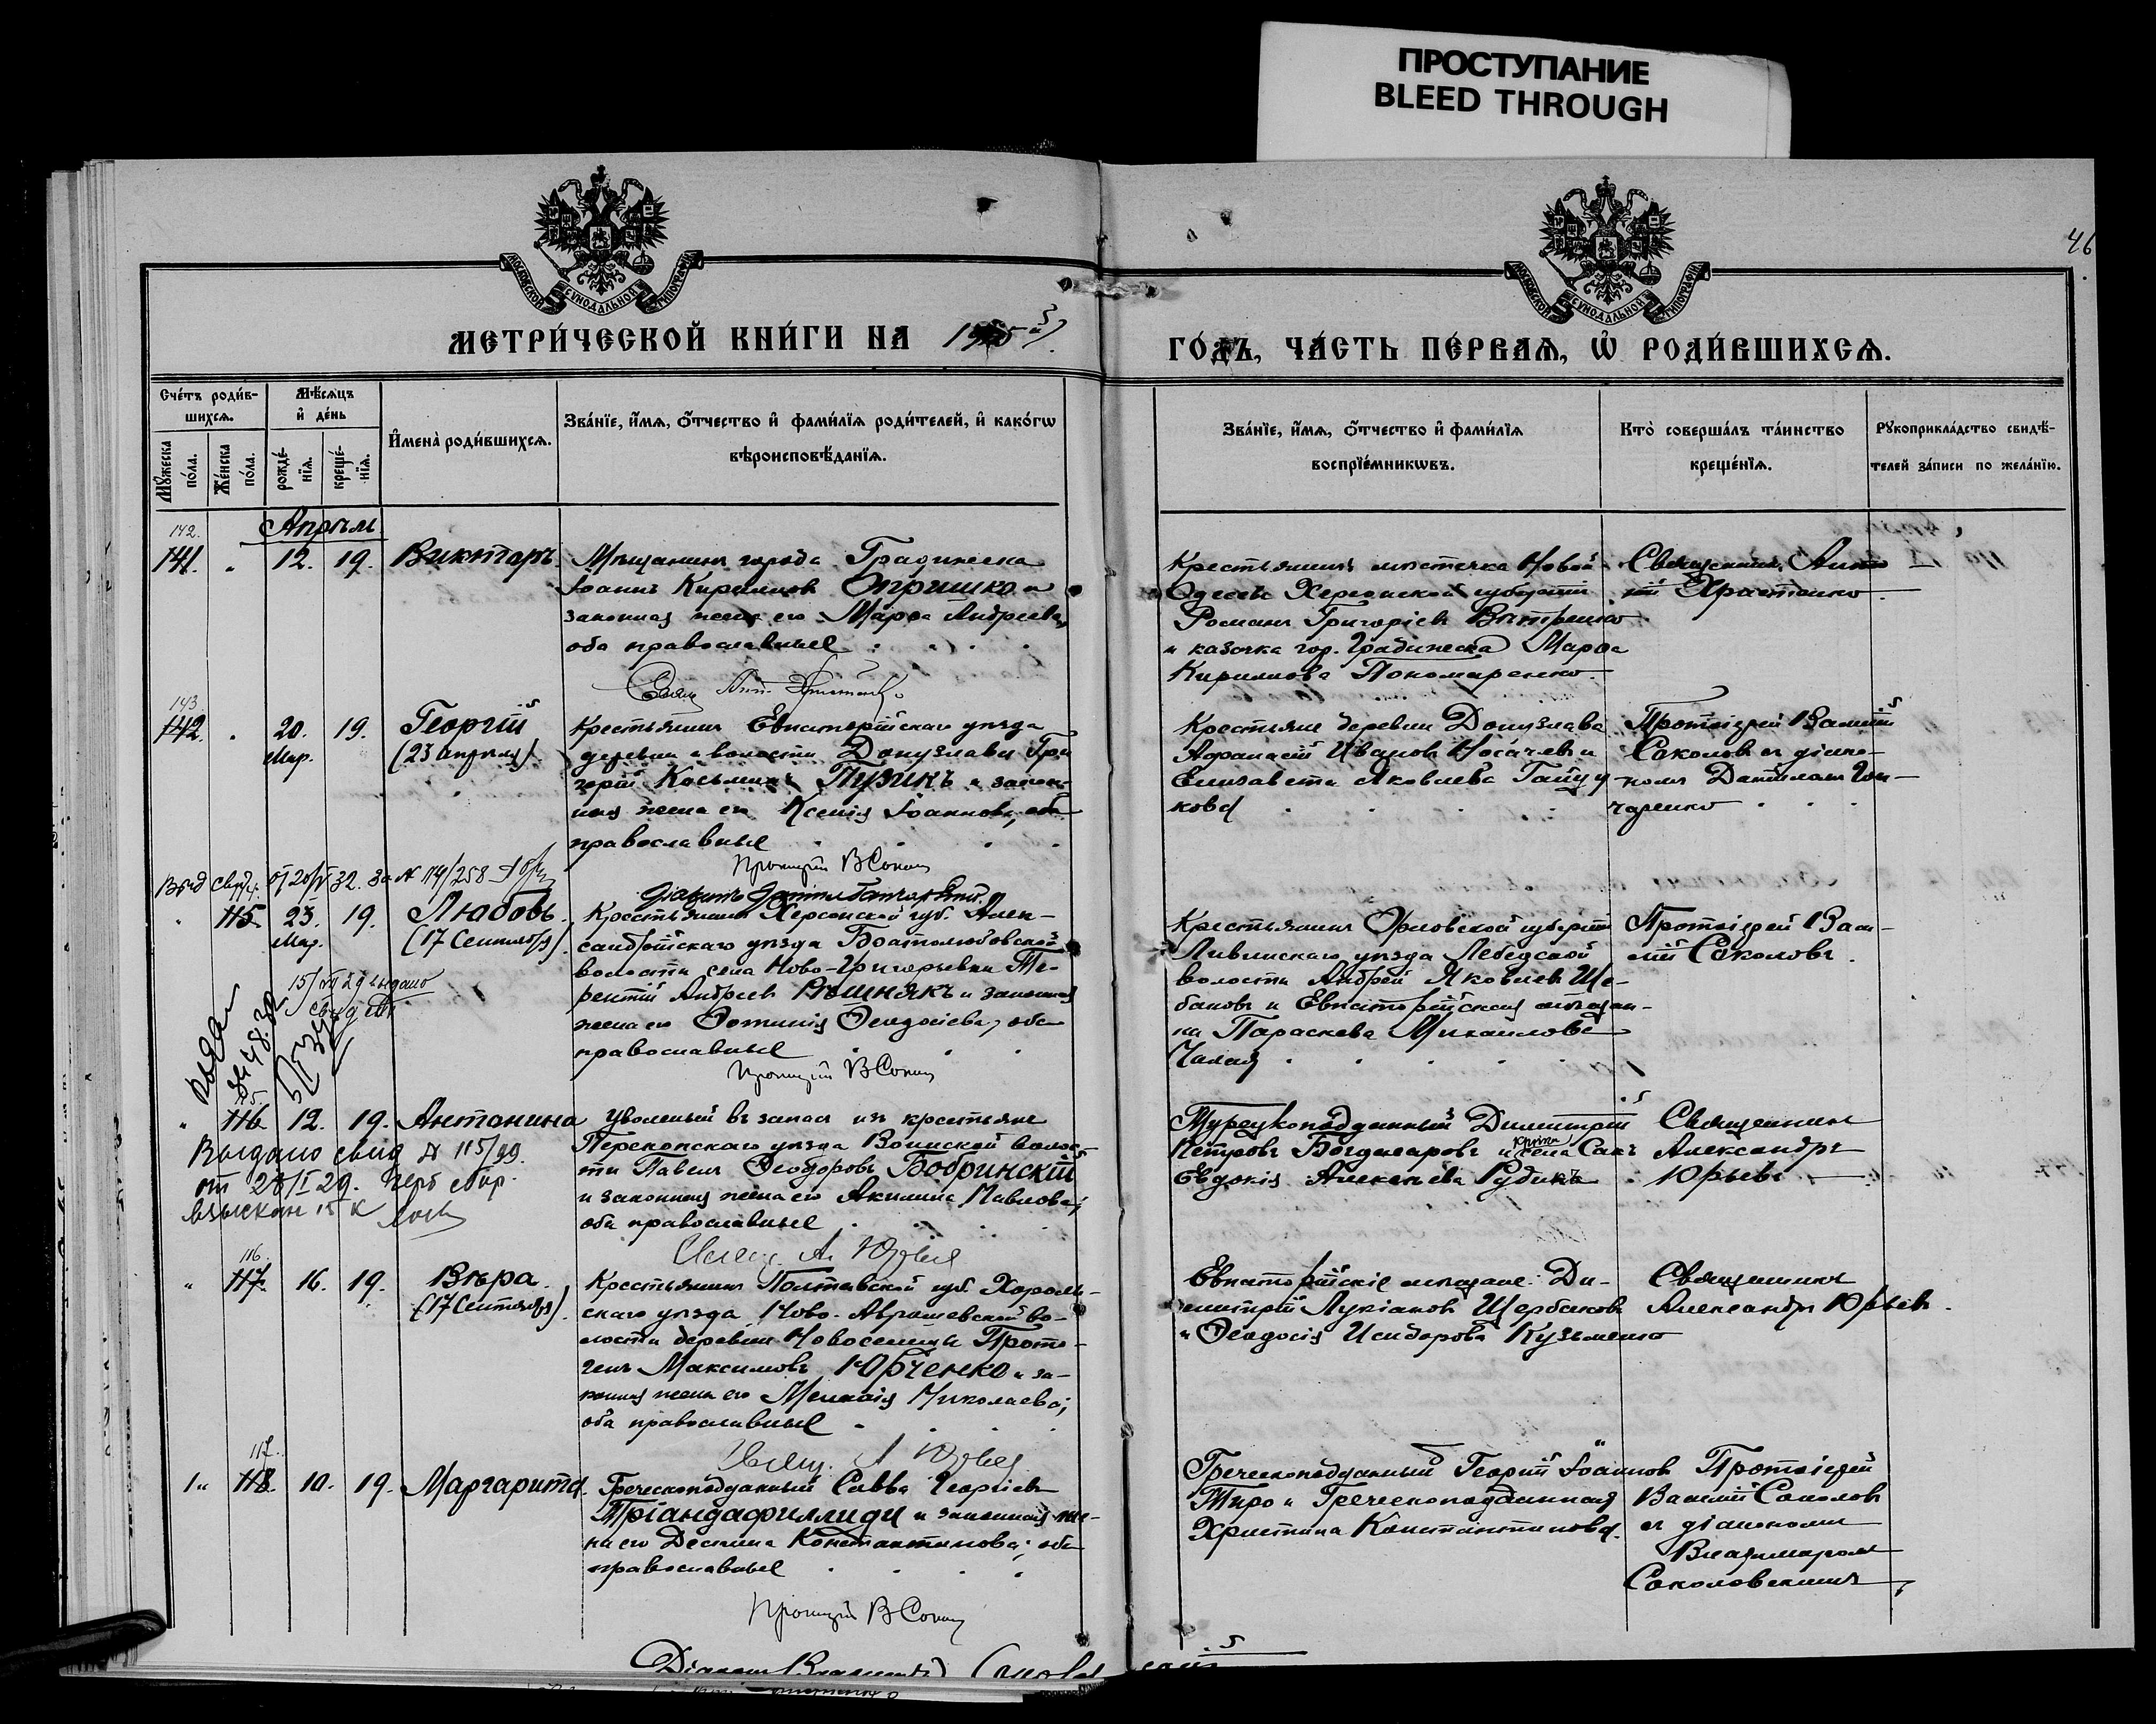 ПРОСТУПАНИЕ
BLEED THROUGH
46
МОСКОВСКОЙ СУНОДАЛЬНОЙ ТИПОГРАФІИ
МОСКОВСКОЙ СУНОДАЛЬНОЙ ТИПОГРАФІИ
МЕТРИ́ЧЕСКОЙ КНИ́ГИ НА
ГО́ДЪ, ЧА́СТЬ ПЕ́РВАѦ, Ѡ҆ РОДИ́ВШИХСѦ.
Сче́тъ роди́в-
шихсѧ.
Мѣ́сѧцъ
и҆ де́нь
Мꙋ́жеска по́ла.
Же́нска по́ла.
рожде́-
нїѧ.
креще́-
нїѧ.
И҆мена̀ роди́вшихсѧ.
Зва́нїе, и҆́мѧ, ѻ҆́тчество и҆ фами́лїѧ роди́телей, и҆ како́гѡ
вѣроисповѣ́данїѧ.
Зва́нїе, и҆́мѧ, ѻ҆́тчество и҆ фами́лїѧ
воспрїе́мникѡвъ.
Кто̀ соверша́лъ та́инство
креще́нїѧ.
Рꙋкоприкла́дство свидѣ́-
телей за́писи по жела́нїю.
Апрѣль
142.
141. 12. 19. Викторъ.
Мѣщанинъ города Градижска
Іоаннъ Кириллов Онришко и
законная жена его Марѳа Андреева,
оба православные
Крестьянинъ мѣстечка Новой
Одессы Херсонской губерніи
Романъ Григоріевъ Вітренко
и казачка гор. Градижска Марѳа
Кириллова Пономаренко.
Священникъ Анто-
ній Христенко.
143.
142. 20. Мар. 19. Георгій
(23 Апрѣля)
Крестьянинъ Евпаторійскаго уѣзда
деревни и волости Донузлавъ Гри
горій Косьминъ Пузикъ и закон-
ная жена его Ксенія Іоаннова, оба
православные
Протоіерей В Сокол
Крестьяне деревни Донузлава
Аѳанасій Ивановъ Носачевъ и
Елизавета Яковлева Гайду
кова
Протоіерей Василій
Соколовъ съ діако-
номъ Даніиломъ Гон-
чаренко
115. 23. Мар. 19. Любовь.
(17 Сентября)
Крестьянинъ Херсонской губ. Алек-
сандрійскаго уѣзда Братолюбовской
волости села Ново-Григорьевки Те-
рентій Андреевъ Вишнякъ и законная
жена его Фотинія Ѳеодосіева, оба
православные
Протоіерей В Сокол
Крестьянинъ Орловской губерніи
Ливинскаго уѣзда Лебедской
волости Андрей Яковлевъ Ще-
баковъ и Евпаторійская мѣщан-
ка Параскева Михаилова
Чалая
Протоіерей Васи-
лій Соколовъ.
116. 12. 19. Антонина
Выдано свид № 115/99.
от 28/I 29. Герб сбор.
взыскан 15 к
Уволенный въ запасъ изъ крестьянъ
Перекопскаго уѣзда Воинской волос-
ти Павелъ Ѳеодоровъ Бобринскій
и законная жена его Акилина Павлова;
оба православные
Свящ. А. Юрьев
Турецкоподданный Димитрій
Петровъ Богдасаровъ и села Сакъ
Евдокія Алексѣева Рудикъ
Священникъ
Александръ
Юрьевъ
116.
117. 16. 19. Вѣра.
(17 Сентября).
Крестьянинъ Полтавской губ. Хороль-
скаго уѣзда, Ново-Аврамевской во-
лости деревни Новоселицы Прото-
генъ Максимовъ Юрченко и за-
конная жена его Меланія Николаева;
оба православные
Свящ. А Юрьев
Евпаторійскіе мѣщане: Ди-
митрій Лукіановъ Щербаковъ
и Ѳеодосія Исидорова Кузьменко
Священникъ
Александръ Юрьевъ.
117.
118. 10. 19. Маргарита.
Греческоподданный Савва Георгіевъ
Тріандафиллиди и законная же-
на его Деспина Константинова; оба
православные
Протоіерей В Сокол
Греческоподданный Георгій Іоанновъ
Тиро и Греческоподданная
Христина Константинова.
Протоіерей
Василій Соколовъ
съ діакономъ
Владиміромъ
Соколовскимъ